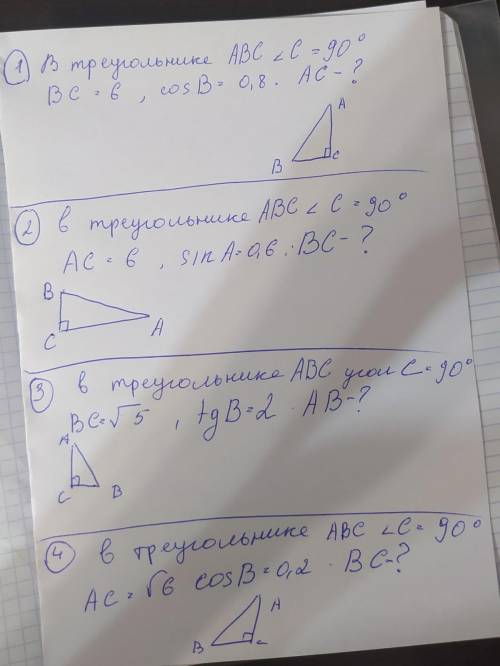 1 В треугольнике ABC ∠C = 90°
BC = 6 , cosB = 0,8 . AC - ?
A
B C
2 в треугольнике ABC ∠ C = 90°
AC = 6 , sin A = 0,6 . BC - ?
B
C A
3 в треугольнике ABC угол C = 90°
BC = √5 , tgB = 2 . AB - ?
A
C B
4 в треугольнике ABC ∠C = 90°
AC = √6 cosB = 0,2 . BC - ?
A
B C